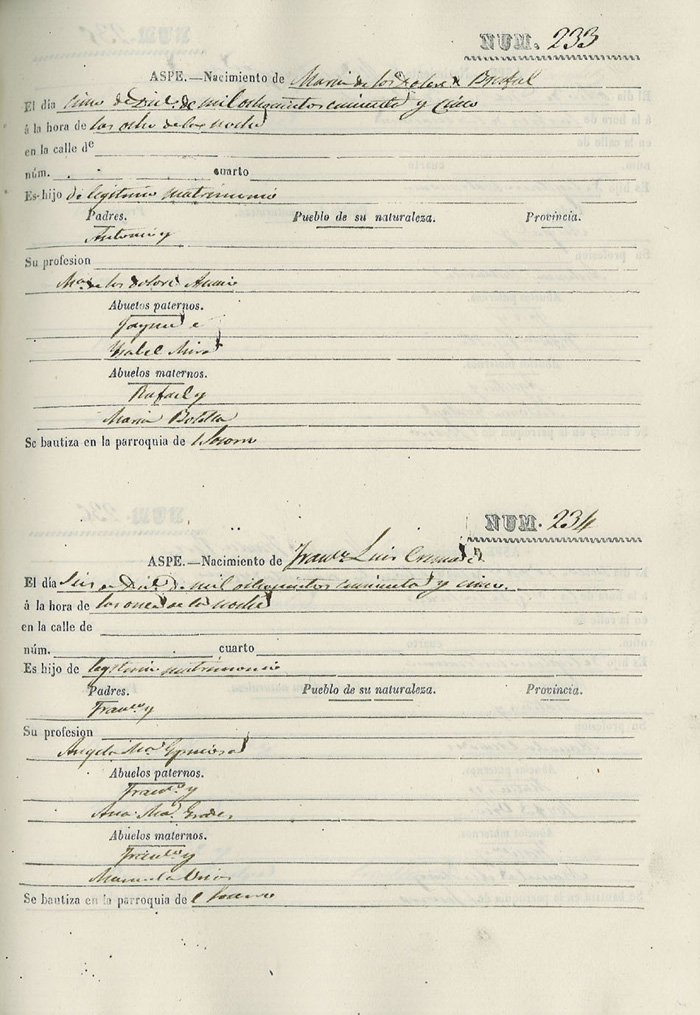 NUM. 233
ASPE.—Nacimiento de Maria de los Dolores
El dia cinco de Dic.e de mil ochocientos cincuenta y cinco
á la hora de las ocho de la noche
en la calle de
núm. cuarto
Es hijo de legitimo matrimonio
Padres. Pueblo de su naturaleza. Provincia.
Antonio y
Su profesion
M.a de los Dolores
Abuelos paternos.
Jayme e
Ysabel Mira
Abuelos maternos.
Rafael y
Maria Botella
Se bautiza en la parroquia de
NUM. 234
ASPE.—Nacimiento de Fran.co Luis Cremades
El dia seis de Dic.e de mil ochocientos cincuenta y cinco
á la hora de las once de la noche
en la calle de
núm. cuarto
Es hijo de legitimo matrimonio
Padres. Pueblo de su naturaleza. Provincia.
Fran.co y
Su profesion
Angela M.a
Abuelos paternos.
Fran.co y
Ana M.a
Abuelos maternos.
Fran.co y
Manuela
Se bautiza en la parroquia de